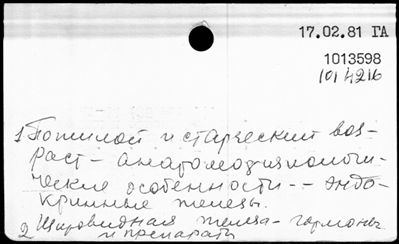 17.02.81 ГА
1013598
1014216
1 Пожилой и старческий воз-
раст - анатомофизиологи-
ческие особенности -- эндо-
кринные железы.
2 Щитовидная железа - гормоны
и препараты